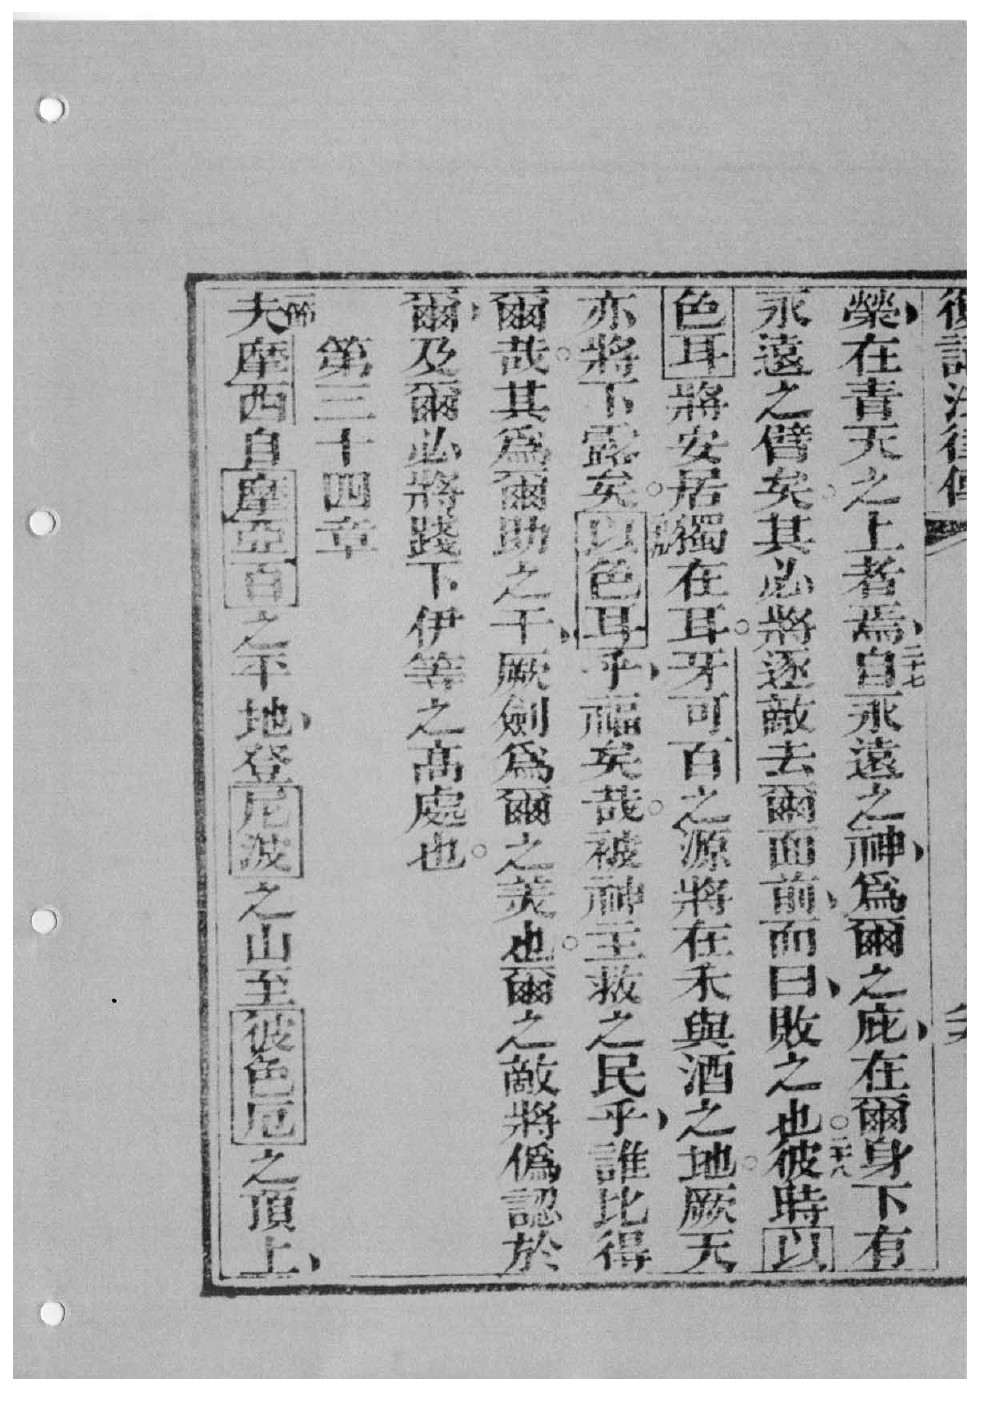 復講法律傳
榮在青天之上者焉二十七自永遠之神爲爾之庇在爾身下有
永遠之臂矣其必將逐敵去爾面前而曰敗之也二十八彼時以
色耳將安居獨在耳牙可百之源將在禾與酒之地厥天
亦將下露矣以色耳乎福矣哉被神主救之民乎誰比得
爾哉其爲爾助之干厥劍爲爾之美也爾之敵將僞認於
爾及爾必將踐下伊等之高處也
第三十四章
夫一節摩西自摩亞百之平地登尼波之山至彼色厄之頂上